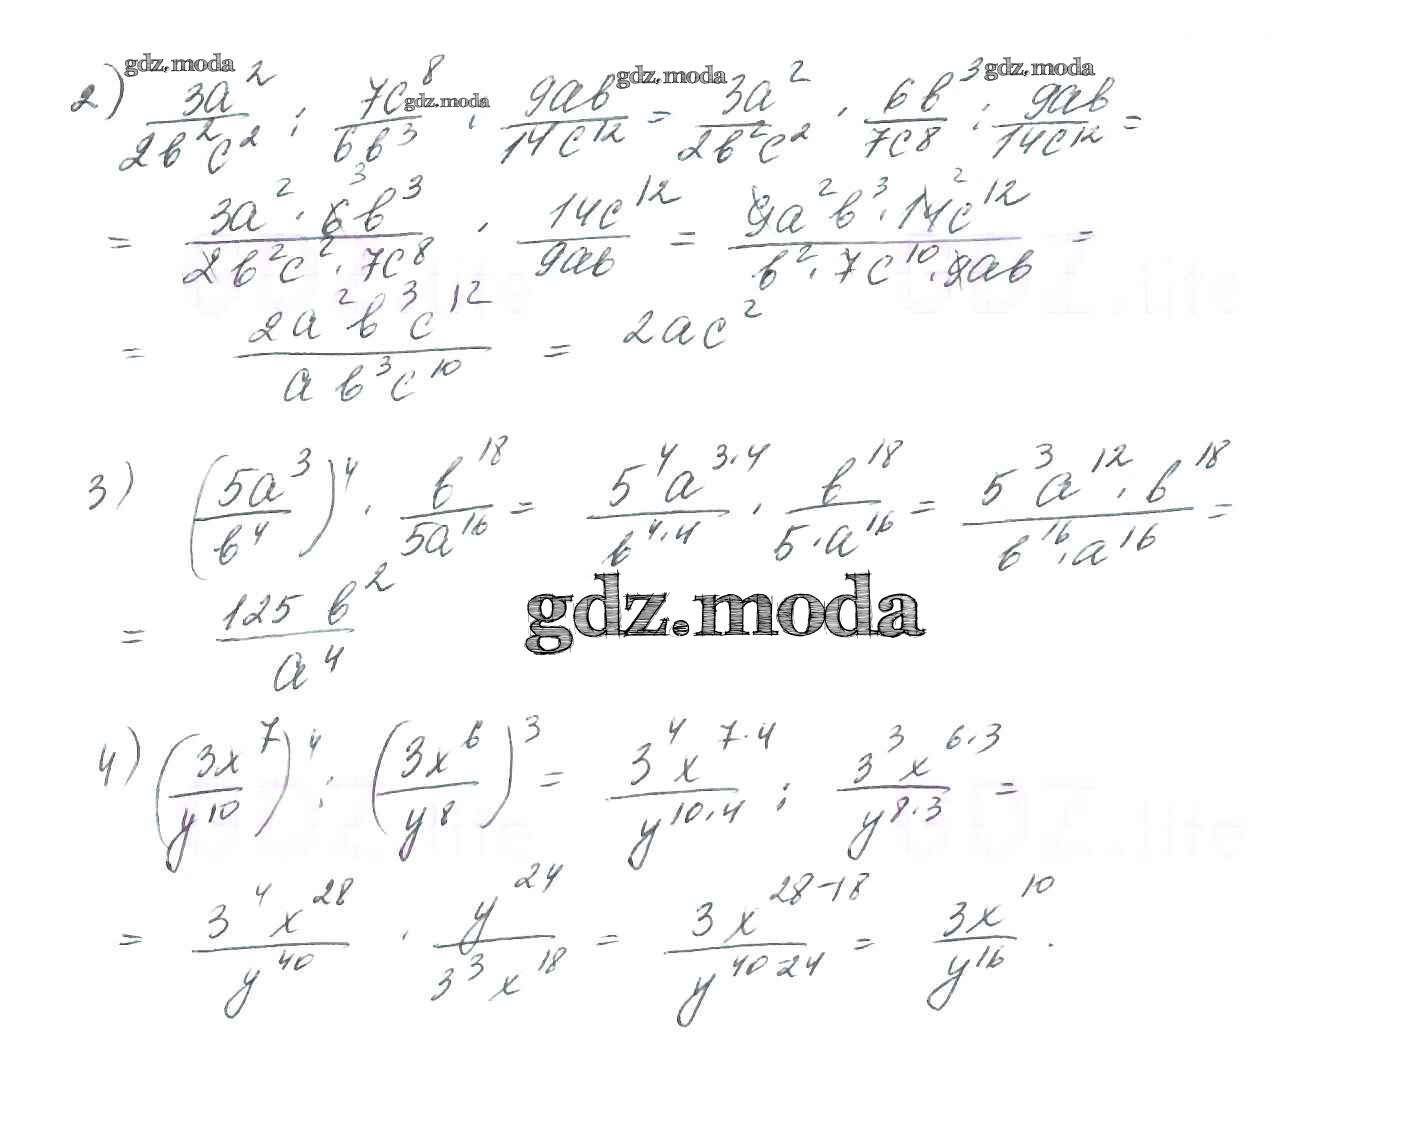 gdz.moda gdz.moda gdz.moda gdz.moda
2) 3a²/2b²c² : 7c⁸/6b³ : 9ab/14c¹² = 3a²/2b²c² · 6b³/7c⁸ : 9ab/14c¹² =
= 3a² · 6b³/2b²c² · 7c⁸ · 14c¹²/9ab = 9a²b³ · 14c¹²/b² · 7c¹⁰ · 9ab =
= 2a²b³c¹²/ab³c¹⁰ = 2ac²
3) (5a³/b⁴)⁴ · b¹⁸/5a¹⁶ = 5⁴a³·⁴/b⁴·⁴ · b¹⁸/5·a¹⁶ = 5³a¹² · b¹⁸/b¹⁶ · a¹⁶ =
= 125b²/a⁴
gdz.moda
4) (3x⁷/y¹⁰)⁴ : (3x⁶/y⁸)³ = 3⁴x⁷·⁴/y¹⁰·⁴ : 3³x⁶·³/y⁸·³ =
= 3⁴x²⁸/y⁴⁰ · y²⁴/3³x¹⁸ = 3x²⁸⁻¹⁸/y⁴⁰⁻²⁴ = 3x¹⁰/y¹⁶.